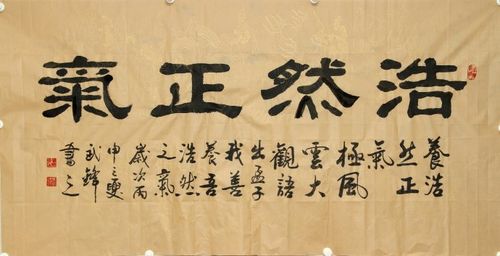 浩然正氣
養浩
然正
氣
極風
雲大
觀語
出孟子
我善
養吾
浩然
之氣
歲次丙
申之夏
武鋒
書之